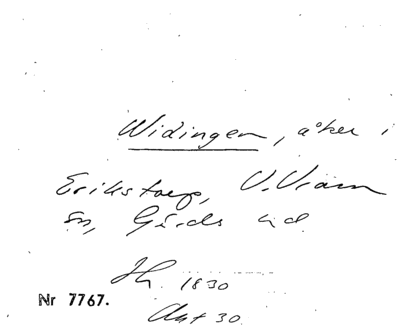 Widingen, åker i
Erikstorp, V. Vram
sn, Gärds hd.
1830
Nr 7767.
Akt 30